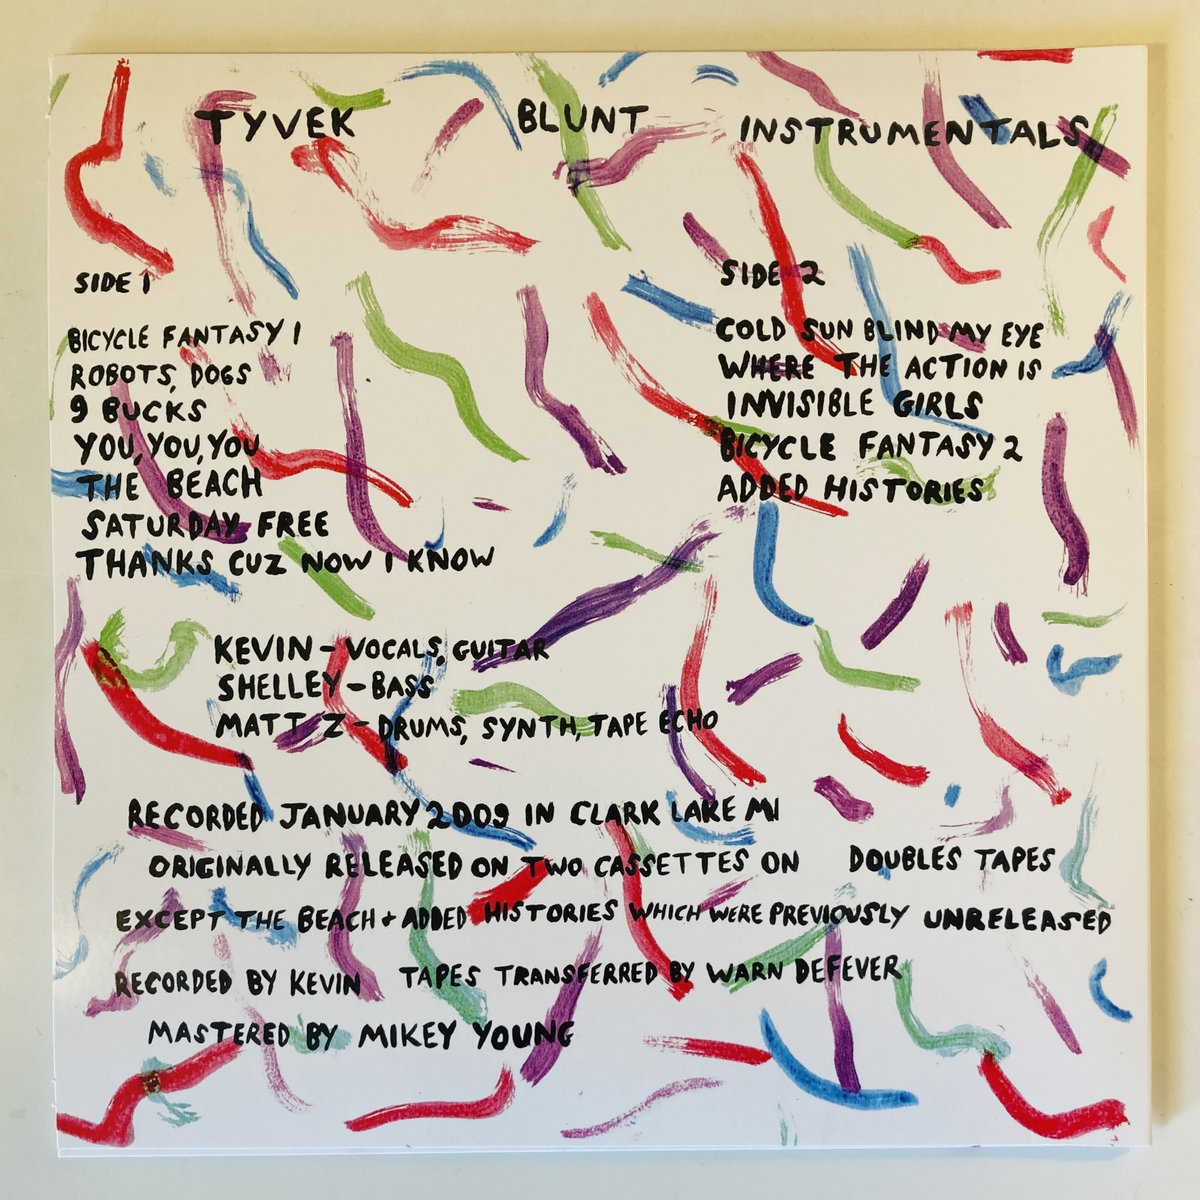 TYVEK BLUNT INSTRUMENTALS
SIDE 1
BICYCLE FANTASY 1
ROBOTS, DOGS
9 BUCKS
YOU, YOU, YOU
THE BEACH
SATURDAY FREE
THANKS CUZ NOW I KNOW
SIDE 2
COLD SUN BLIND MY EYE
WHERE THE ACTION IS
INVISIBLE GIRLS
BICYCLE FANTASY 2
ADDED HISTORIES
KEVIN - VOCALS, GUITAR
SHELLEY - BASS
MATT Z - DRUMS, SYNTH, TAPE ECHO
RECORDED JANUARY 2009 IN CLARK LAKE MI
ORIGINALLY RELEASED ON TWO CASSETTES ON DOUBLES TAPES
EXCEPT THE BEACH + ADDED HISTORIES WHICH WERE PREVIOUSLY UNRELEASED
RECORDED BY KEVIN TAPES TRANSFERRED BY WARN DEFEVER
MASTERED BY MIKEY YOUNG